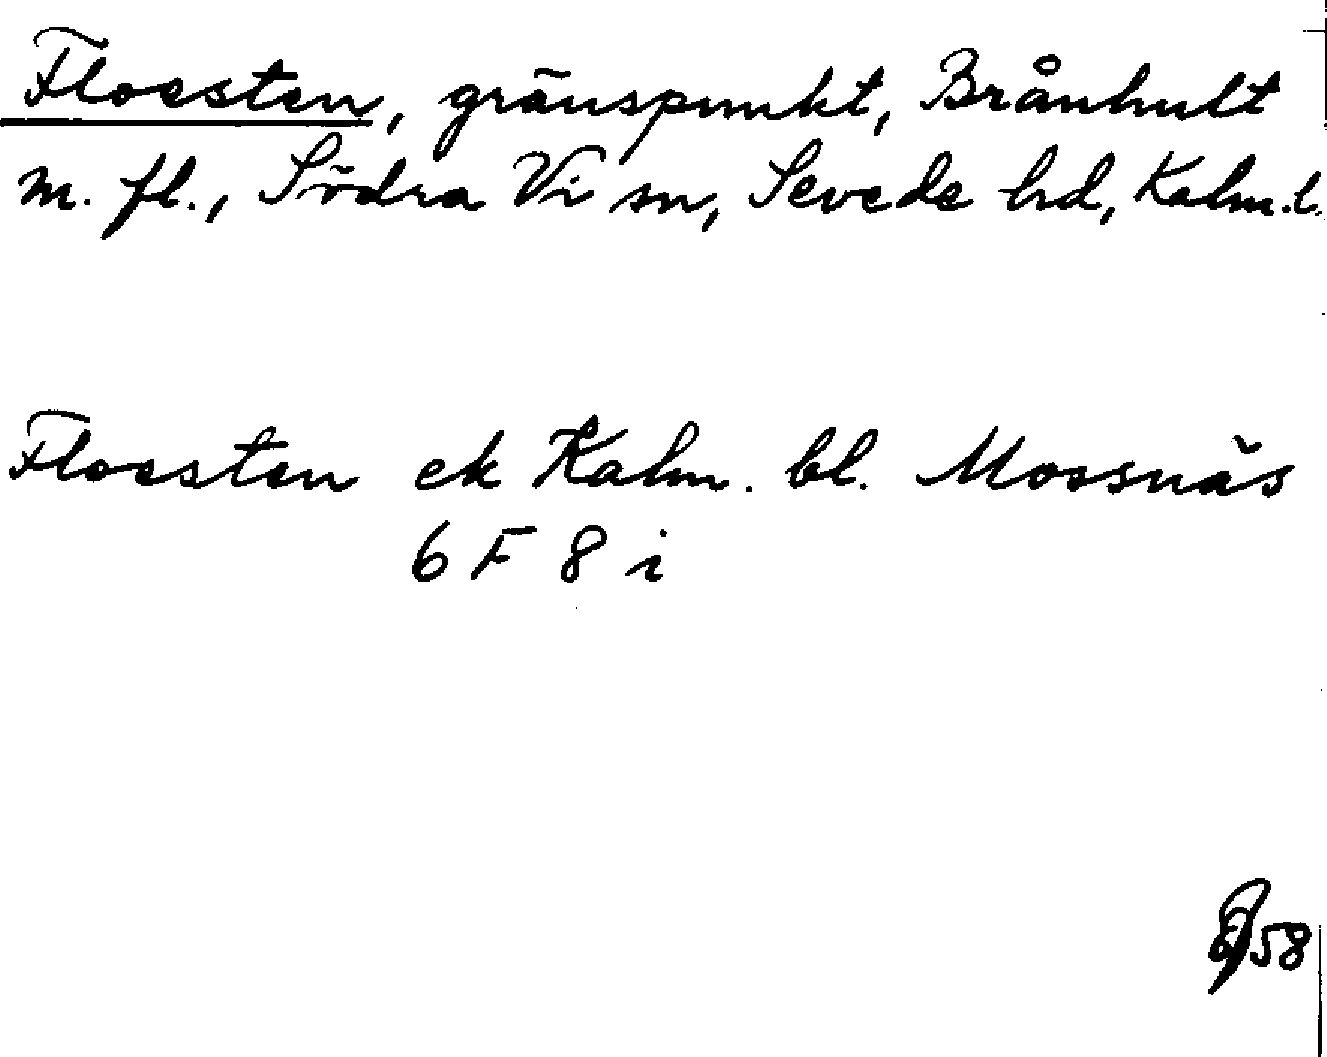 Floesten, gränspunkt, Brånhult
m. fl., Södra Vi sn, Sevede hd, Kalm. l.
Floesten ek Kalm. bl. Mossnäs
6 F 8 i
58